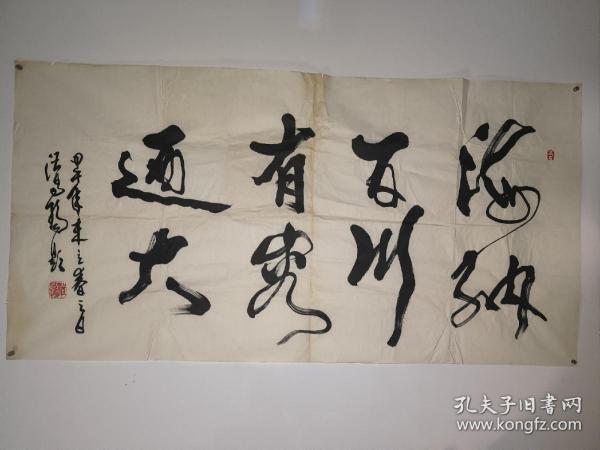 海纳
百川
有容
迺大
甲午年末之春三月
题
孔夫子旧书网
www.kongfz.com